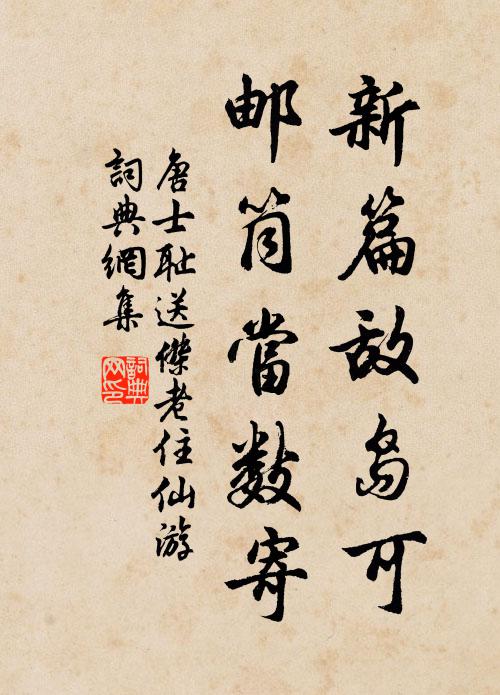 新篇敌岛可
邮筒當数寄
唐士耻送傑老住仙游
詞典網集
詞典网印